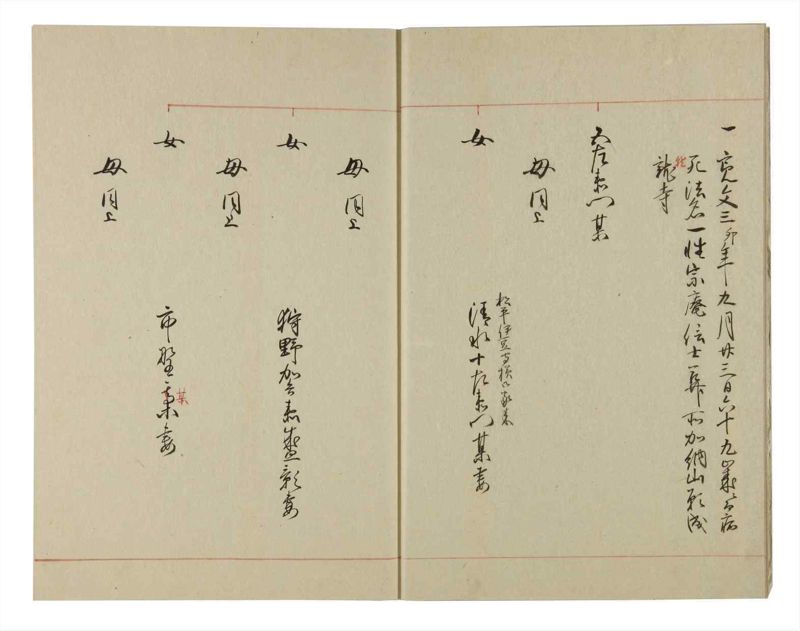 一寛文三卯年九月廿三日六十九歳ニ而病
死法名一性宗庵信士葬所加納山願成
就
龍寺
五左衛門某
母同上
女
松平伊豆守様御家来
清水十左衛門某妻
母同上
女
狩野加兵衛盛彰妻
母同上
女
市野某妻
某
母同上